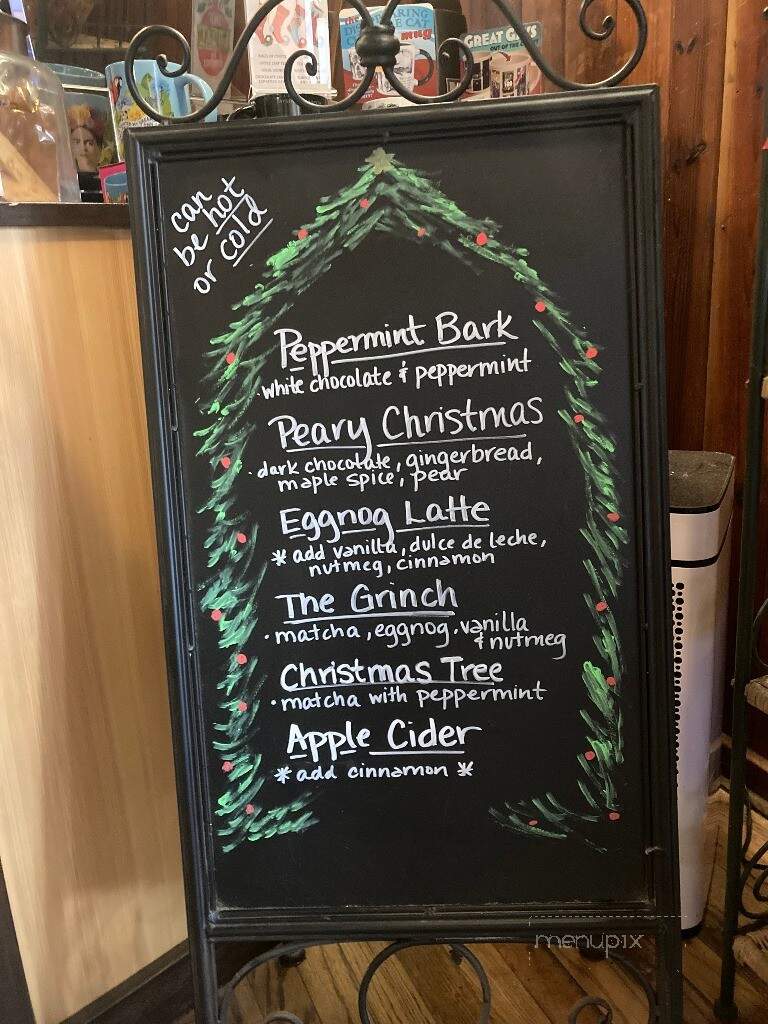 DISAPPEARING
CAT
mug
GREAT GUYS
OUT OF THE
can
be hot
or cold
Peppermint Bark
·white chocolate & peppermint
Peary Christmas
·dark chocolate, gingerbread,
maple spice, pear
Eggnog Latte
* add vanilla, dulce de leche,
nutmeg, cinnamon
The Grinch
·matcha, eggnog, vanilla
& nutmeg
Christmas Tree
·matcha with peppermint
Apple Cider
* add cinnamon *
menupix